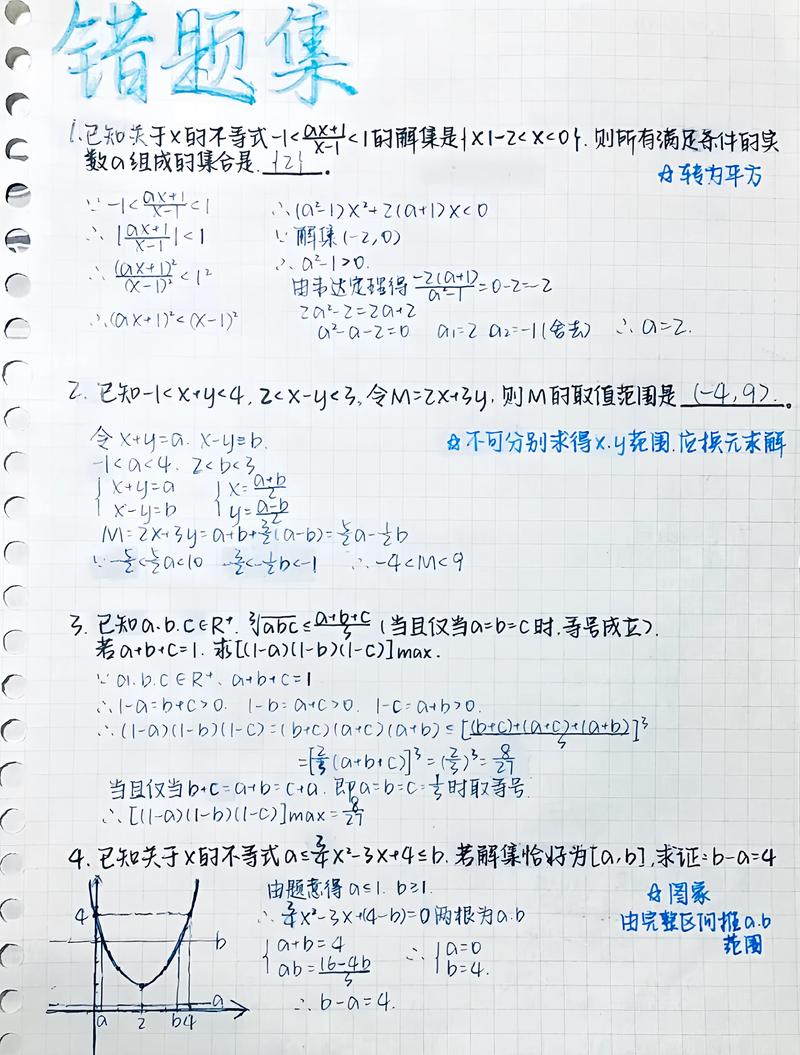 错题集
1.已知关于x的不等式-1<\frac{ax+1}{x-1}<1的解集是{x|-2<x<0}.则所有满足条件的实
数a组成的集合是 {2} 。
☆转为平方
∵ -1<\frac{ax+1}{x-1}<1
∴ |\frac{ax+1}{x-1}|<1
∴ \frac{(ax+1)²}{(x-1)²}<1²
∴(ax+1)²<(x-1)²
∴(a²-1)x²+2(a+1)x<0
∵ 解集(-2,0)
∴ a²-1>0.
由韦达定理得\frac{-2(a+1)}{a²-1}=0-2=-2
2a²-2=2a+2
a²-a-2=0 a₁=2 a₂=-1(舍去) ∴ a=2.
2. 已知-1<x+y<4, 2<x-y<3,令M=2x+3y,则M的取值范围是 (-4,9) 。
☆不可分别求得x.y范围.应换元求解
令 x+y=a. x-y=b.
-1<a<4. 2<b<3
{ x+y=a { x=\frac{a+b}{2}
x-y=b y=\frac{a-b}{2}
M=2x+3y=a+b+\frac{3}{2}(a-b)=\frac{5}{2}a-\frac{1}{2}b
∵ -\frac{5}{2}<\frac{5}{2}a<10 -\frac{3}{2}<-\frac{1}{2}b<-1 ∴ -4<M<9
3. 已知a.b.c∈R⁺. ³√abc≤\frac{a+b+c}{3} (当且仅当a=b=c时.等号成立).
若a+b+c=1. 求[(1-a)(1-b)(1-c)]max.
∵ a.b.c∈R⁺、a+b+c=1
∴1-a=b+c>0. 1-b=a+c>0. 1-c=a+b>0.
∴(1-a)(1-b)(1-c)=(b+c)(a+c)(a+b)≤[\frac{(b+c)+(a+c)+(a+b)}{3}]³
=[\frac{2}{3}(a+b+c)]³=(\frac{2}{3})³=\frac{8}{27}
当且仅当b+c=a+b=c+a.即a=b=c=\frac{1}{3}时取等号.
∴ [(1-a)(1-b)(1-c)]max=\frac{8}{27}
4. 已知关于x的不等式a≤\frac{3}{4}x²-3x+4≤b.若解集恰好为[a,b],求证:b-a=4
由题意得 a≤1. b≥1.
∴ \frac{3}{4}x²-3x+(4-b)=0两根为a.b
{ a+b=4 ∴ { a=0
ab=\frac{16-4b}{3} b=4.
∴ b-a=4.
☆图象
由完整区间推a.b
范围
4
b
a
a 2 b 4